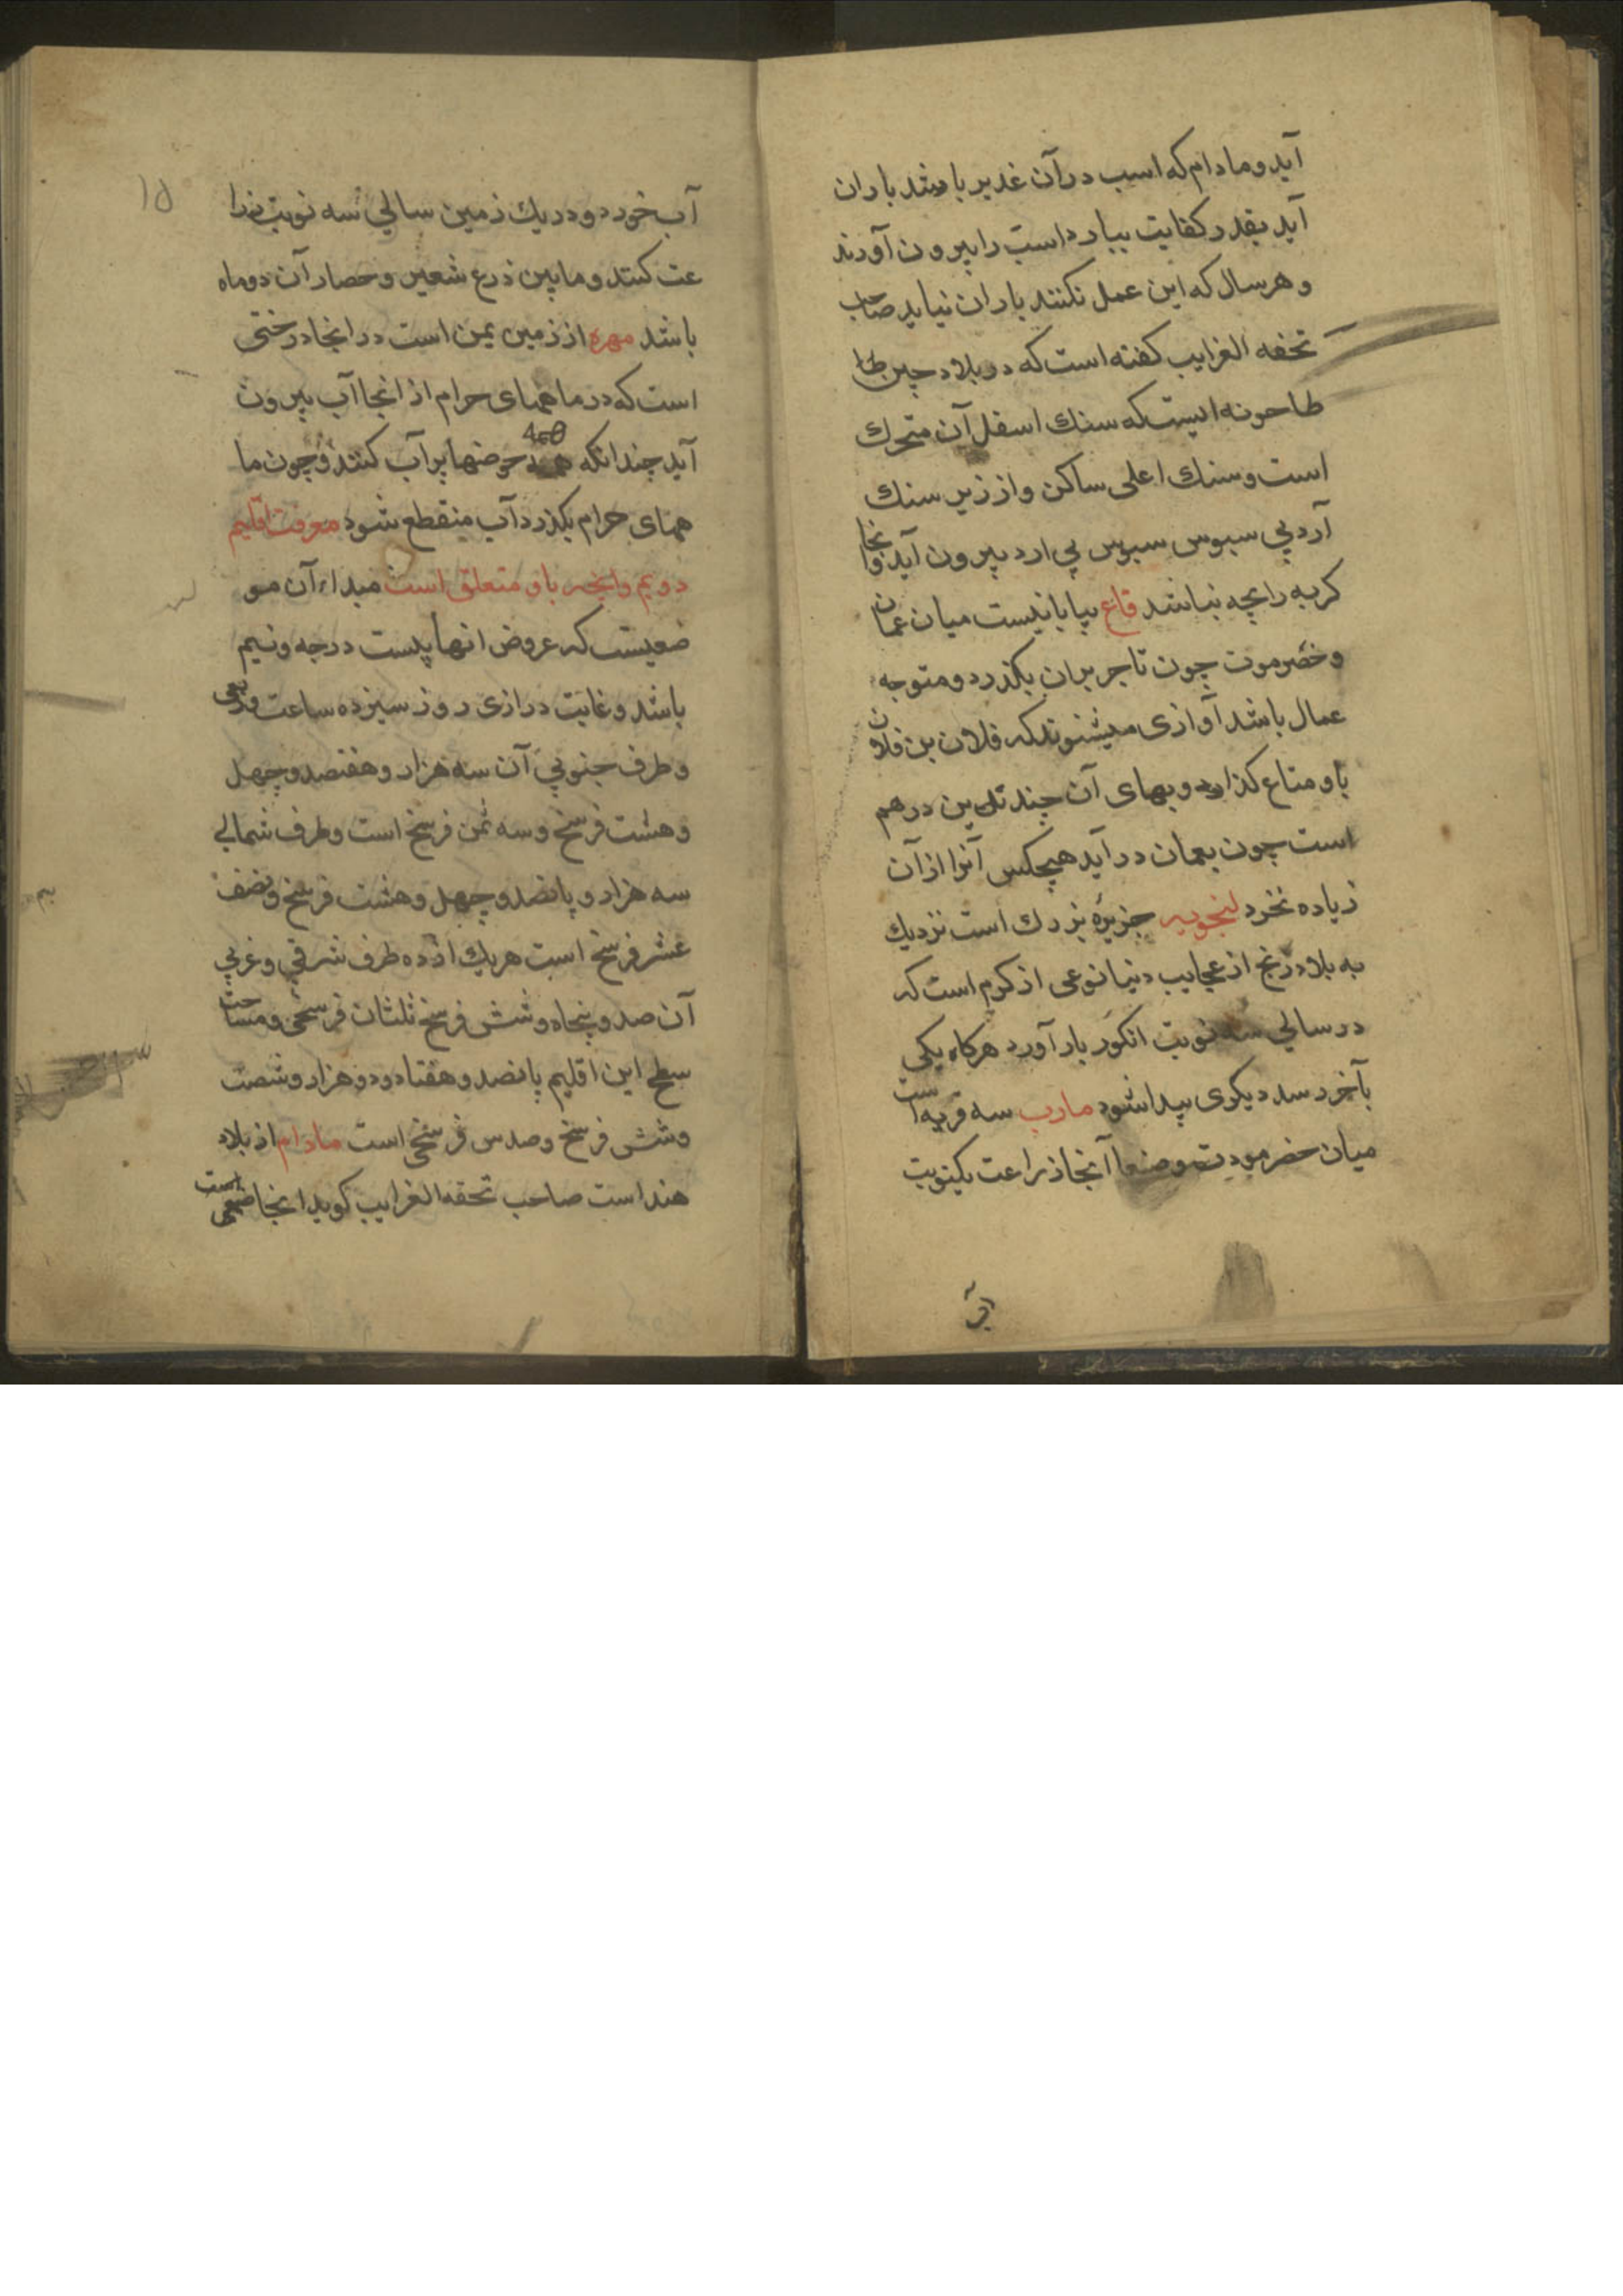 آید و مادام که اسب در آن غدیر باشد باران
آید بقدر کفایت ببارد اسب را بیرون آورند
و هر سال که این عمل نکنند باران نیاید صاحب
تحفه الغرایب کفته است که در بلاد چین
طاحونه ایست که سنك اسفل آن متحرك
است و سنك اعلی ساکن و از زیر سنك
آرد بی سبوس سبوس بی ارد بیرون آید و آنجا
کربه را بچه نباشد قاع بیابانیست میان عمان
و حضرموت چون تاجر بران بکذرد و متوجه
عمال باشد آوازی میشنوند که فلان بن فلان
باو متاع کذا و بهای آن چندین درهم
است چون بعمان در آید هیچکس آنرا از آن
زیاده نخرد لنجویه جزیرهٔ بزرك است نزدیك
به بلاد زنج از عجایب دنیا نوعی از کرم است که
در سالی سه نوبت انکور بار آورد هرکاه یکی
بآخر رسد دیکری پیدا شود مارب سه قریه است
میان حضرموت و صنعا آنجا زراعت یکنوبت
آب
۱۵
آب خورد و در یك زمین سالی سه نوبت زرا
عت کنند و ما بین زرع شعیر و حصار آن دو ماه
باشد مهره از زمین یمن است در انجا درختی
است که در ماههای حرام از انجا آب بیرون
آید چندانکه همه حوضها پر آب کنند و چون ما
ههای حرام بکذرد آب منقطع شود معرفت اقلیم
دویم وانچه باو متعلق است مبداء آن مو
ضعیست که عروض انها بیست درجه و نیم
باشد و غایت درازی روز سیزده ساعت وربعی
و طرف جنوبی آن سه هزار و هفتصد و چهل
و هشت فرسخ و سه ثمن فرسخ است و طرف شمالی
سه هزار و پانصد و چهل و هشت فرسخ و نصف
عشر فرسخ است هر یك از ده طرف شرقی و غربی
آن صد و پنجاه و شش فرسخ ثلثان فرسخی و مساحت
سطح این اقلیم پانصد و هفتاد و دو هزار و شصت
و شش فرسخ و صدس فرسخی است مادام از بلاد
هند است صاحب تحفه الغرایب کوید انجا صنمی است